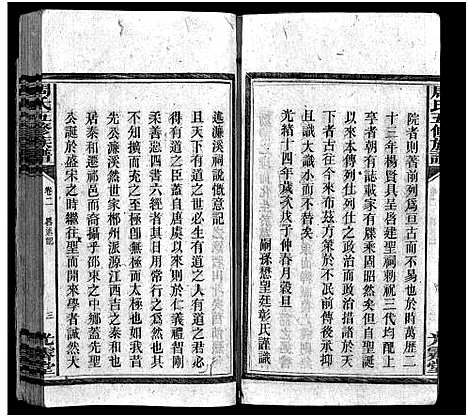 周氏五修族譜
院者則善前列爲亘古而不易也於時萬歷二
十三年楊賢具呈啓建聖祠勅祝三代均配上
享者朝有誌載家有牒乘固昭然矣但自聖誕
以來本傳列仕列之政治而政治措諸於天
下者古往今來布茲方策於不泯前傳後承可
且識大識小而不昔矣
光緒十四年歲次戊子仲春月穀旦
嗣孫懋望廷彰氏謹識
光霽堂
述濂溪祠說僚意記
且天下有有道之世必生有道之人有道之君必
得有道之臣蓋自唐虞以來則於仁義禮智剛
柔善惡四書六經者其日用常行之事爲然也
太極圖說始言無極而太極也如我
先公濂溪然世家郴州派源江西吉之泰和也
居泰和遷祁邑而奇攝乎邵東之中鄉蓋先聖
公誕於盛宋之時繼往聖而開來學者誠然大
周氏五修族譜
卷二
三
光霽堂